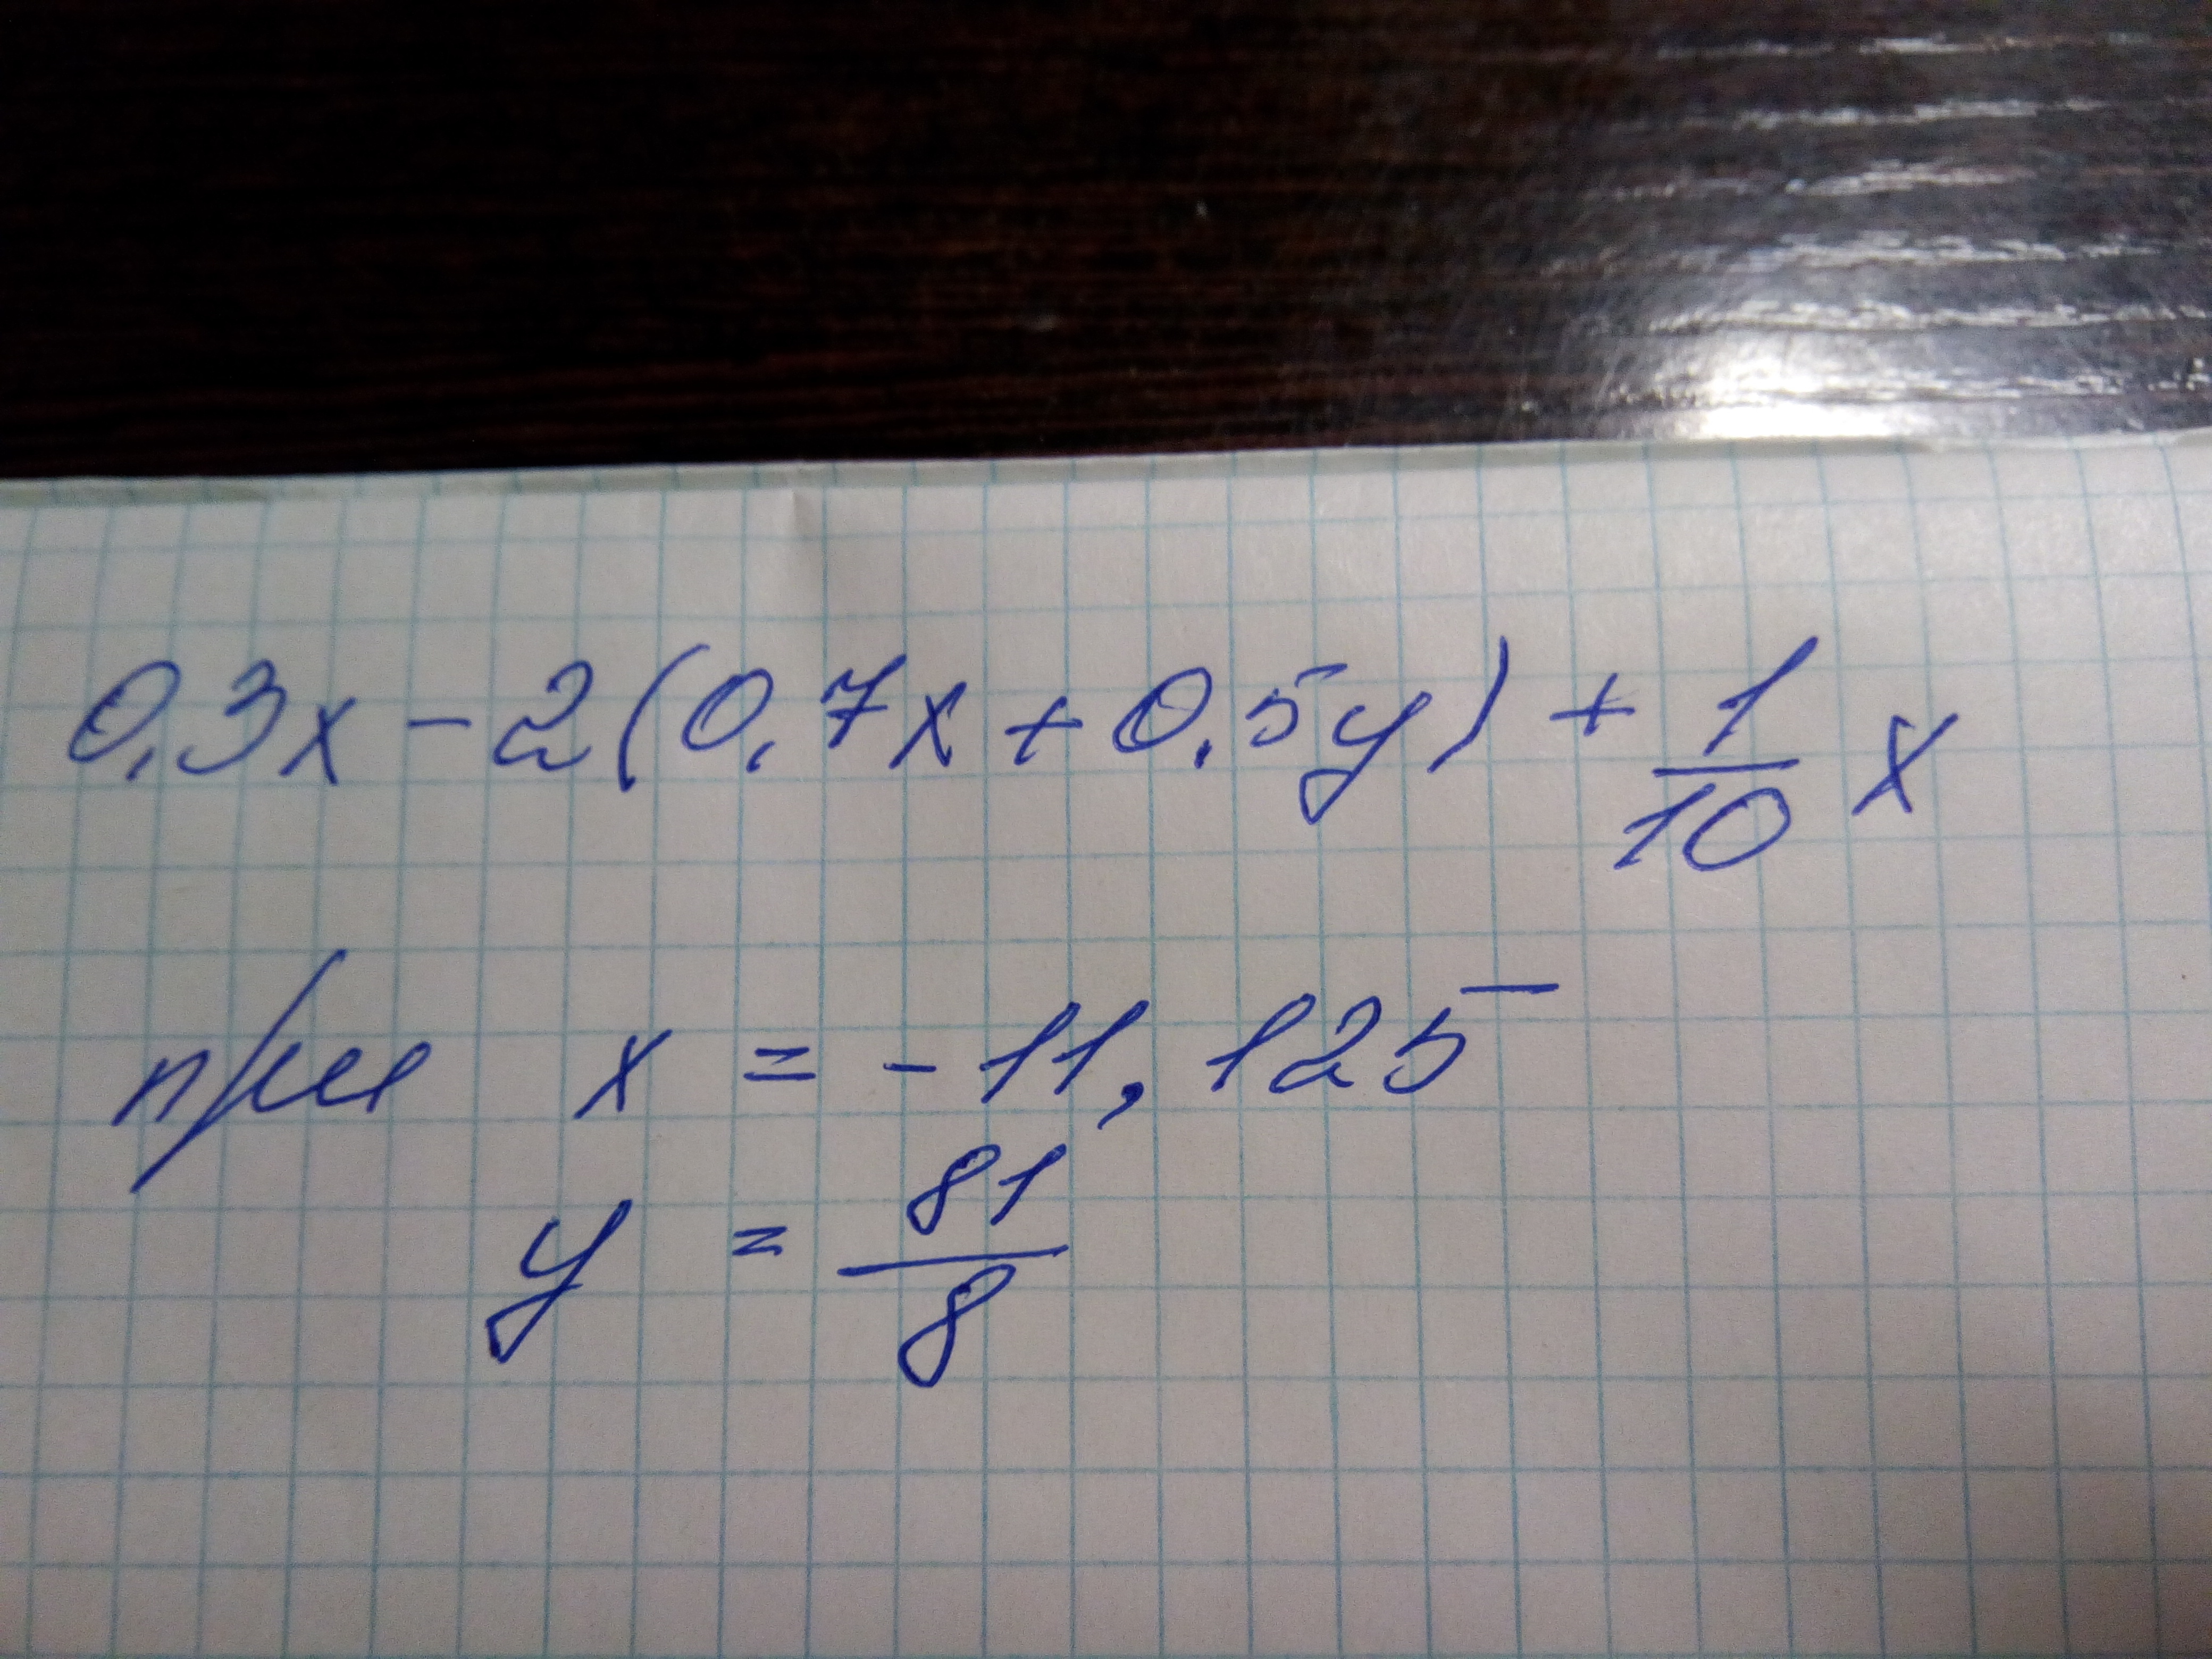 0,3x - 2(0,7x + 0,5y) + 1/10 x
при x = - 11,125
y = 81/8